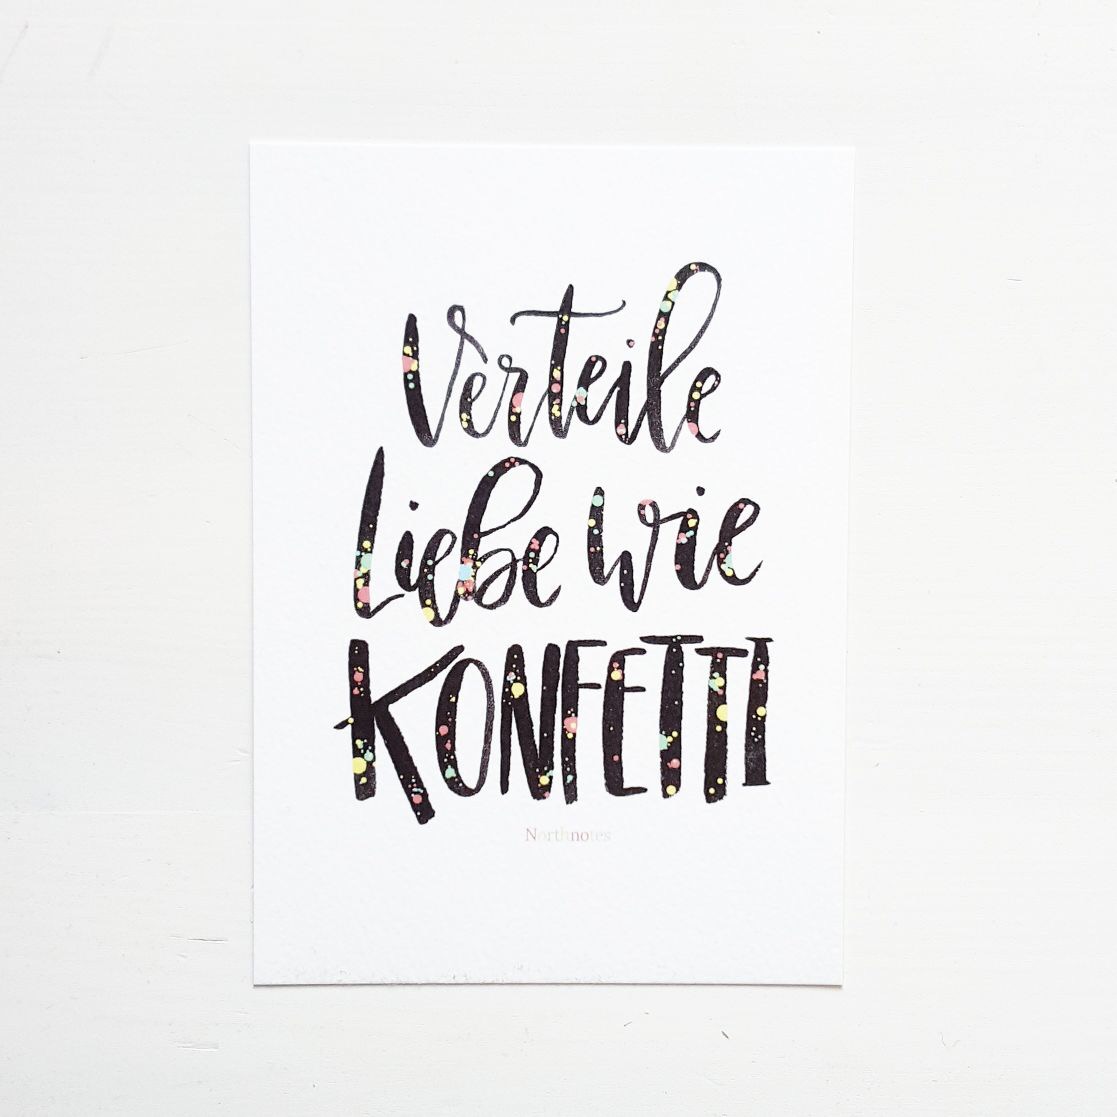 Verteile
Liebe wie
KONFETTI
Northnotes